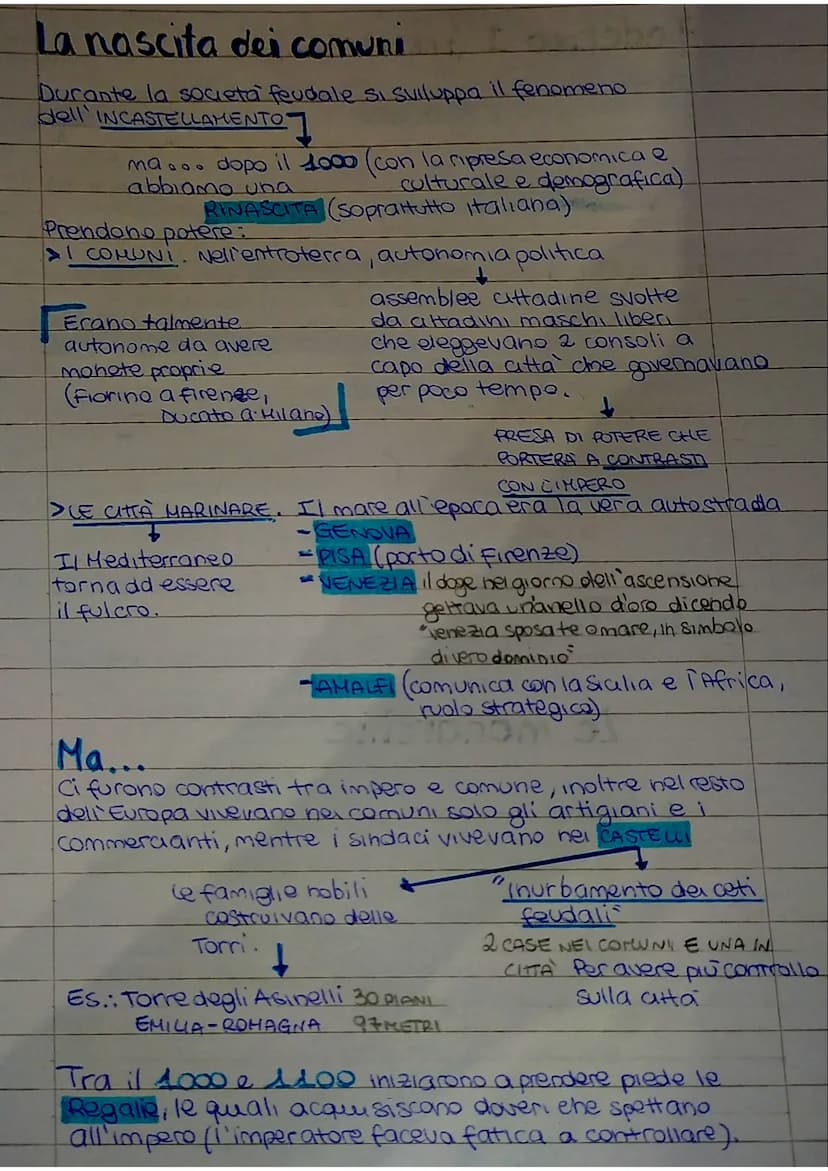 La nascita dei comuni
Durante la società feudale si sviluppa il fenomeno
dell'INCASTELLAMENTO
ma... dopo il 1000 (con la ripresa economica e
abbiamo una culturale e demografica)
RINASCITA (soprattutto italiana)
Prendono potere:
> I COMUNI. Nell'entroterra, autonomia politica
assemblee cittadine svolte
da cittadini maschi liberi
che eleggevano 2 consoli a
capo della città che governavano
per poco tempo.
Erano talmente
autonome da avere
monete proprie
(Fiorino a firenze,
Ducato a Milano)
PRESA DI POTERE CHE
PORTERÀ A CONTRASTI
CON L'IMPERO
> LE CITTÀ MARINARE. Il mare all'epoca era la vera autostrada
Il Mediterraneo
torna ad essere
il fulcro.
- GENOVA
- PISA (porto di Firenze)
- VENEZIA il doge nel giorno dell'ascensione
gettava un'anello d'oro dicendo
"venezia sposa te o mare, in simbolo
di vero dominio"
- AMALFI (comunica con la Sicilia e l'Africa,
ruolo strategico)
Ma...
Ci furono contrasti tra impero e comune, inoltre nel resto
dell'Europa vivevano nei comuni solo gli artigiani e i
commercianti, mentre i sindaci vivevano nei CASTELLI
Le famiglie nobili
costruivano delle
Torri.
Es.: Torre degli Asinelli 30 PIANI
EMILIA-ROMAGNA 97 METRI
"inurbamento dei ceti
feudali"
2 CASE NEI COMUNI E UNA IN
CITTÀ Per avere più controllo
sulla città
Tra il 1000 e 1100 iniziarono a prendere piede le
Regalie, le quali acquisiscono doveri che spettano
all'impero (l'imperatore faceva fatica a controllare).